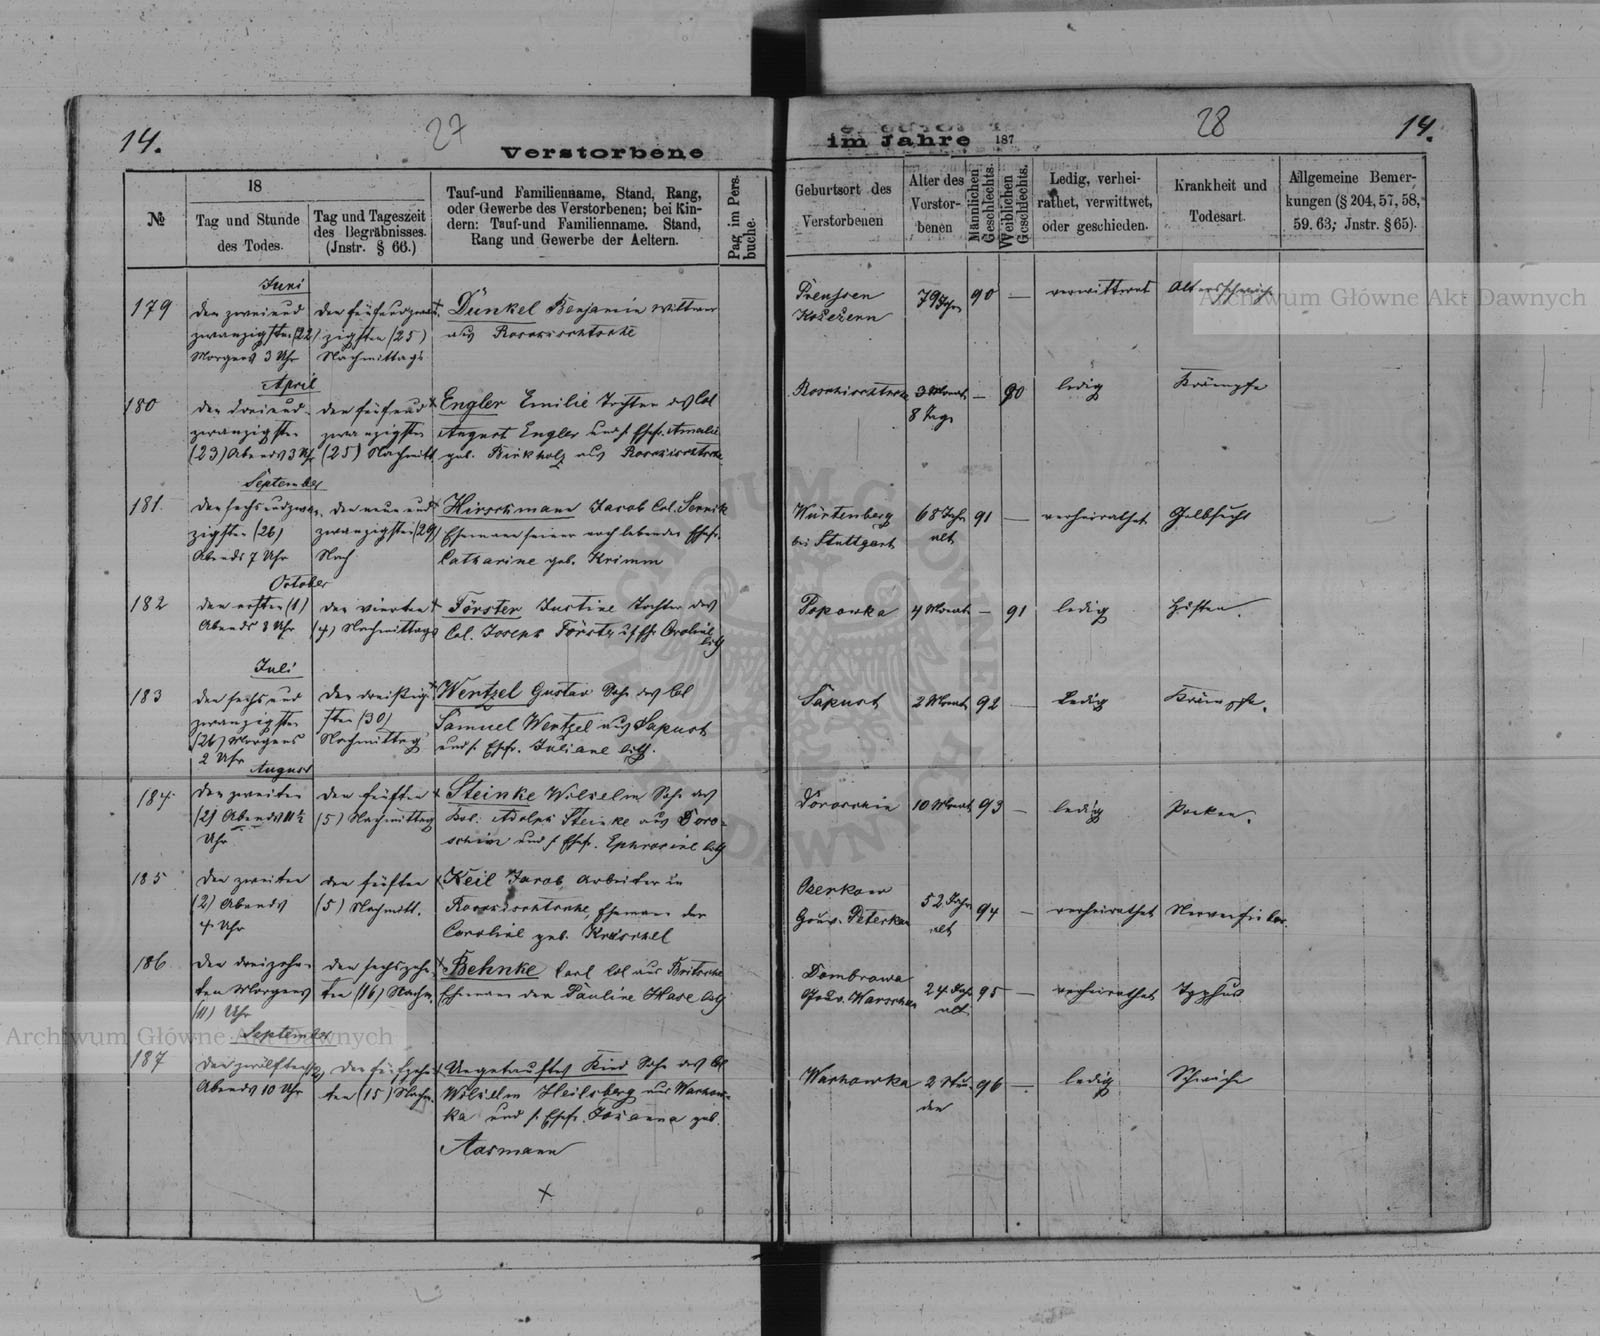 14.
27
Verstorbene
im Jahre 187
28
14.
№
18
Tag und Stunde
des Todes.
Tag und Tageszeit
des Begräbnisses.
(Jnstr. § 66.)
Tauf-und Familienname, Stand, Rang,
oder Gewerbe des Verstorbenen; bei Kin-
dern: Tauf-und Familienname. Stand,
Rang und Gewerbe der Aeltern.
Pag im Pers.
buche.
Geburtsort des
Verstorbenen
Alter des
Verstor-
benen
Männlichen
Geschlechts.
Weiblichen
Geschlechts.
Ledig, verhei-
rathet, verwittwet,
oder geschieden.
Krankheit und
Todesart.
Allgemeine Bemer-
kungen (§ 204, 57, 58,
59. 63; Jnstr. § 65).
Juni
179
den zweiund
zwanzigsten (22)
Morgens 3 Uhr
den fünfundzwan
zigsten (25)
Nachmittags
Dünkel Benjamin Wittwer
aus
Preussen
79 Jahr
90
—
verwittwet
Altersschwäche
April
180
den dreiund
zwanzigsten
(23) Abends 3 Uhr
den fünfund
zwanzigsten
(25) Nachmitt
Engler Emilie Tochter des Col
August Engler und s. Ehefr. Amalie
geb. Birkholz aus
3 Monat
8 Tage
—
90
ledig
Krämpfe
September
181.
den sechsundzwan
zigsten (26)
Abends 7 Uhr
den neunund
zwanzigsten (29)
Nach
Hirschmann Jacob Col. Sernik
Ehemann seiner noch lebenden Ehefr.
Catharine geb. Krimm
Würtenberg
bei Stuttgart
68 Jahr
alt
91
—
verheirathet
Gelbsucht
October
182
den ersten (1)
Abends 8 Uhr
den vierten
(4) Nachmittags
Förster Justine Tochter des
Col. Joseph Förster u s Ehfr Caroline
Popowka
4 Monat
—
91
ledig
Husten.
Juli
183
den sechs und
zwanzigsten
(26) Morgens
2 Uhr
den dreißig
sten (30)
Nachmittag
Wentzel Gustav Sohn des Col
Samuel Wentzel aus Sapust
und s. Ehefr. Juliane
Sapust
2 Monat
92
—
ledig
Krämpfe.
August
184.
den zweiten
(2) Abends 11½
Uhr
den fünften
(5) Nachmittag
Steinke Wilhelm Sohn des
Kol. Adolph Steinke aus Doro-
schin und s. Ehefr. Ephrosine
Doroschin
10 Monat
93
—
ledig
Pocken.
185
den zweiten
(2) Abends
4 Uhr
den fünften
(5) Nachmitt.
Keil Jacob Arbeiter in
Ehemann der
Caroline geb. Kröschel
Ozerkow
Gouv. Peterkau
52 Jahr
alt
94
—
verheirathet
Nervenfieber.
186
den dreizehn-
ten Morgens
(11) Uhr
den sechszehn
ten (16) Nachm.
Behnke Carl Col aus
Ehemann der Pauline Hase
Dombrowa
Gouv. Warschau
24 Jahr
alt.
95
—
verheirathet
Typhus
September
187
den zwölften (12)
Abends 10 Uhr
den fünfzehn
ten (15) Nachm.
Ungetauftes Kind Sohn des Col
Wilhelm Heilsberg aus Warkow-
ka und s. Ehefr. Johanna geb.
Aasmann
Warkowka
2 Stun-
den
96
—
ledig
Schwäche
Archiwum Główne Akt Dawnych
Archiwum Główne Akt Dawnych
ARCHIWUM GŁÓWNE AKT DAWNYCH